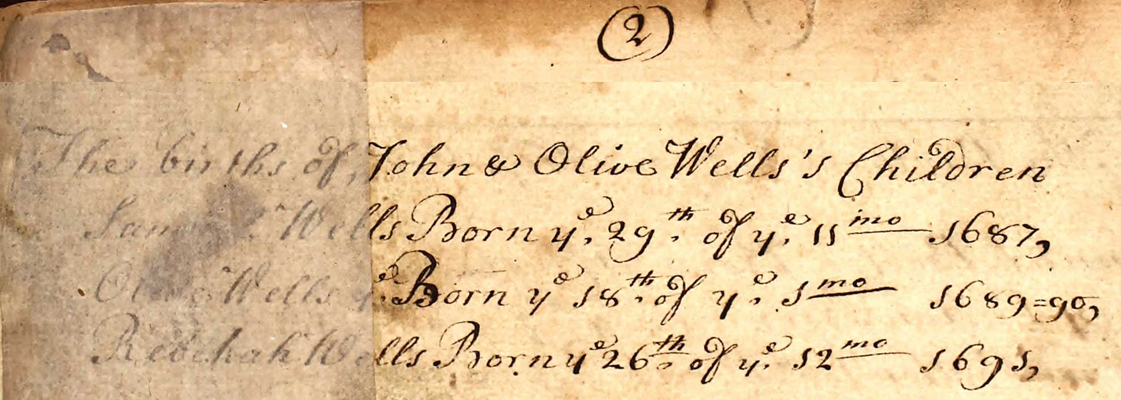 (2)
The births of John & Olive Wells's Children
Wells Born yᵉ 29ᵗʰ of yᵉ 11ᵐᵒ 1687,
Olive Wells Born yᵉ 18ᵗʰ of yᵉ 1ᵐᵒ 1689=90,
Rebekah Wells Born yᵉ 26ᵗʰ of yᵉ 12ᵐᵒ 1691,